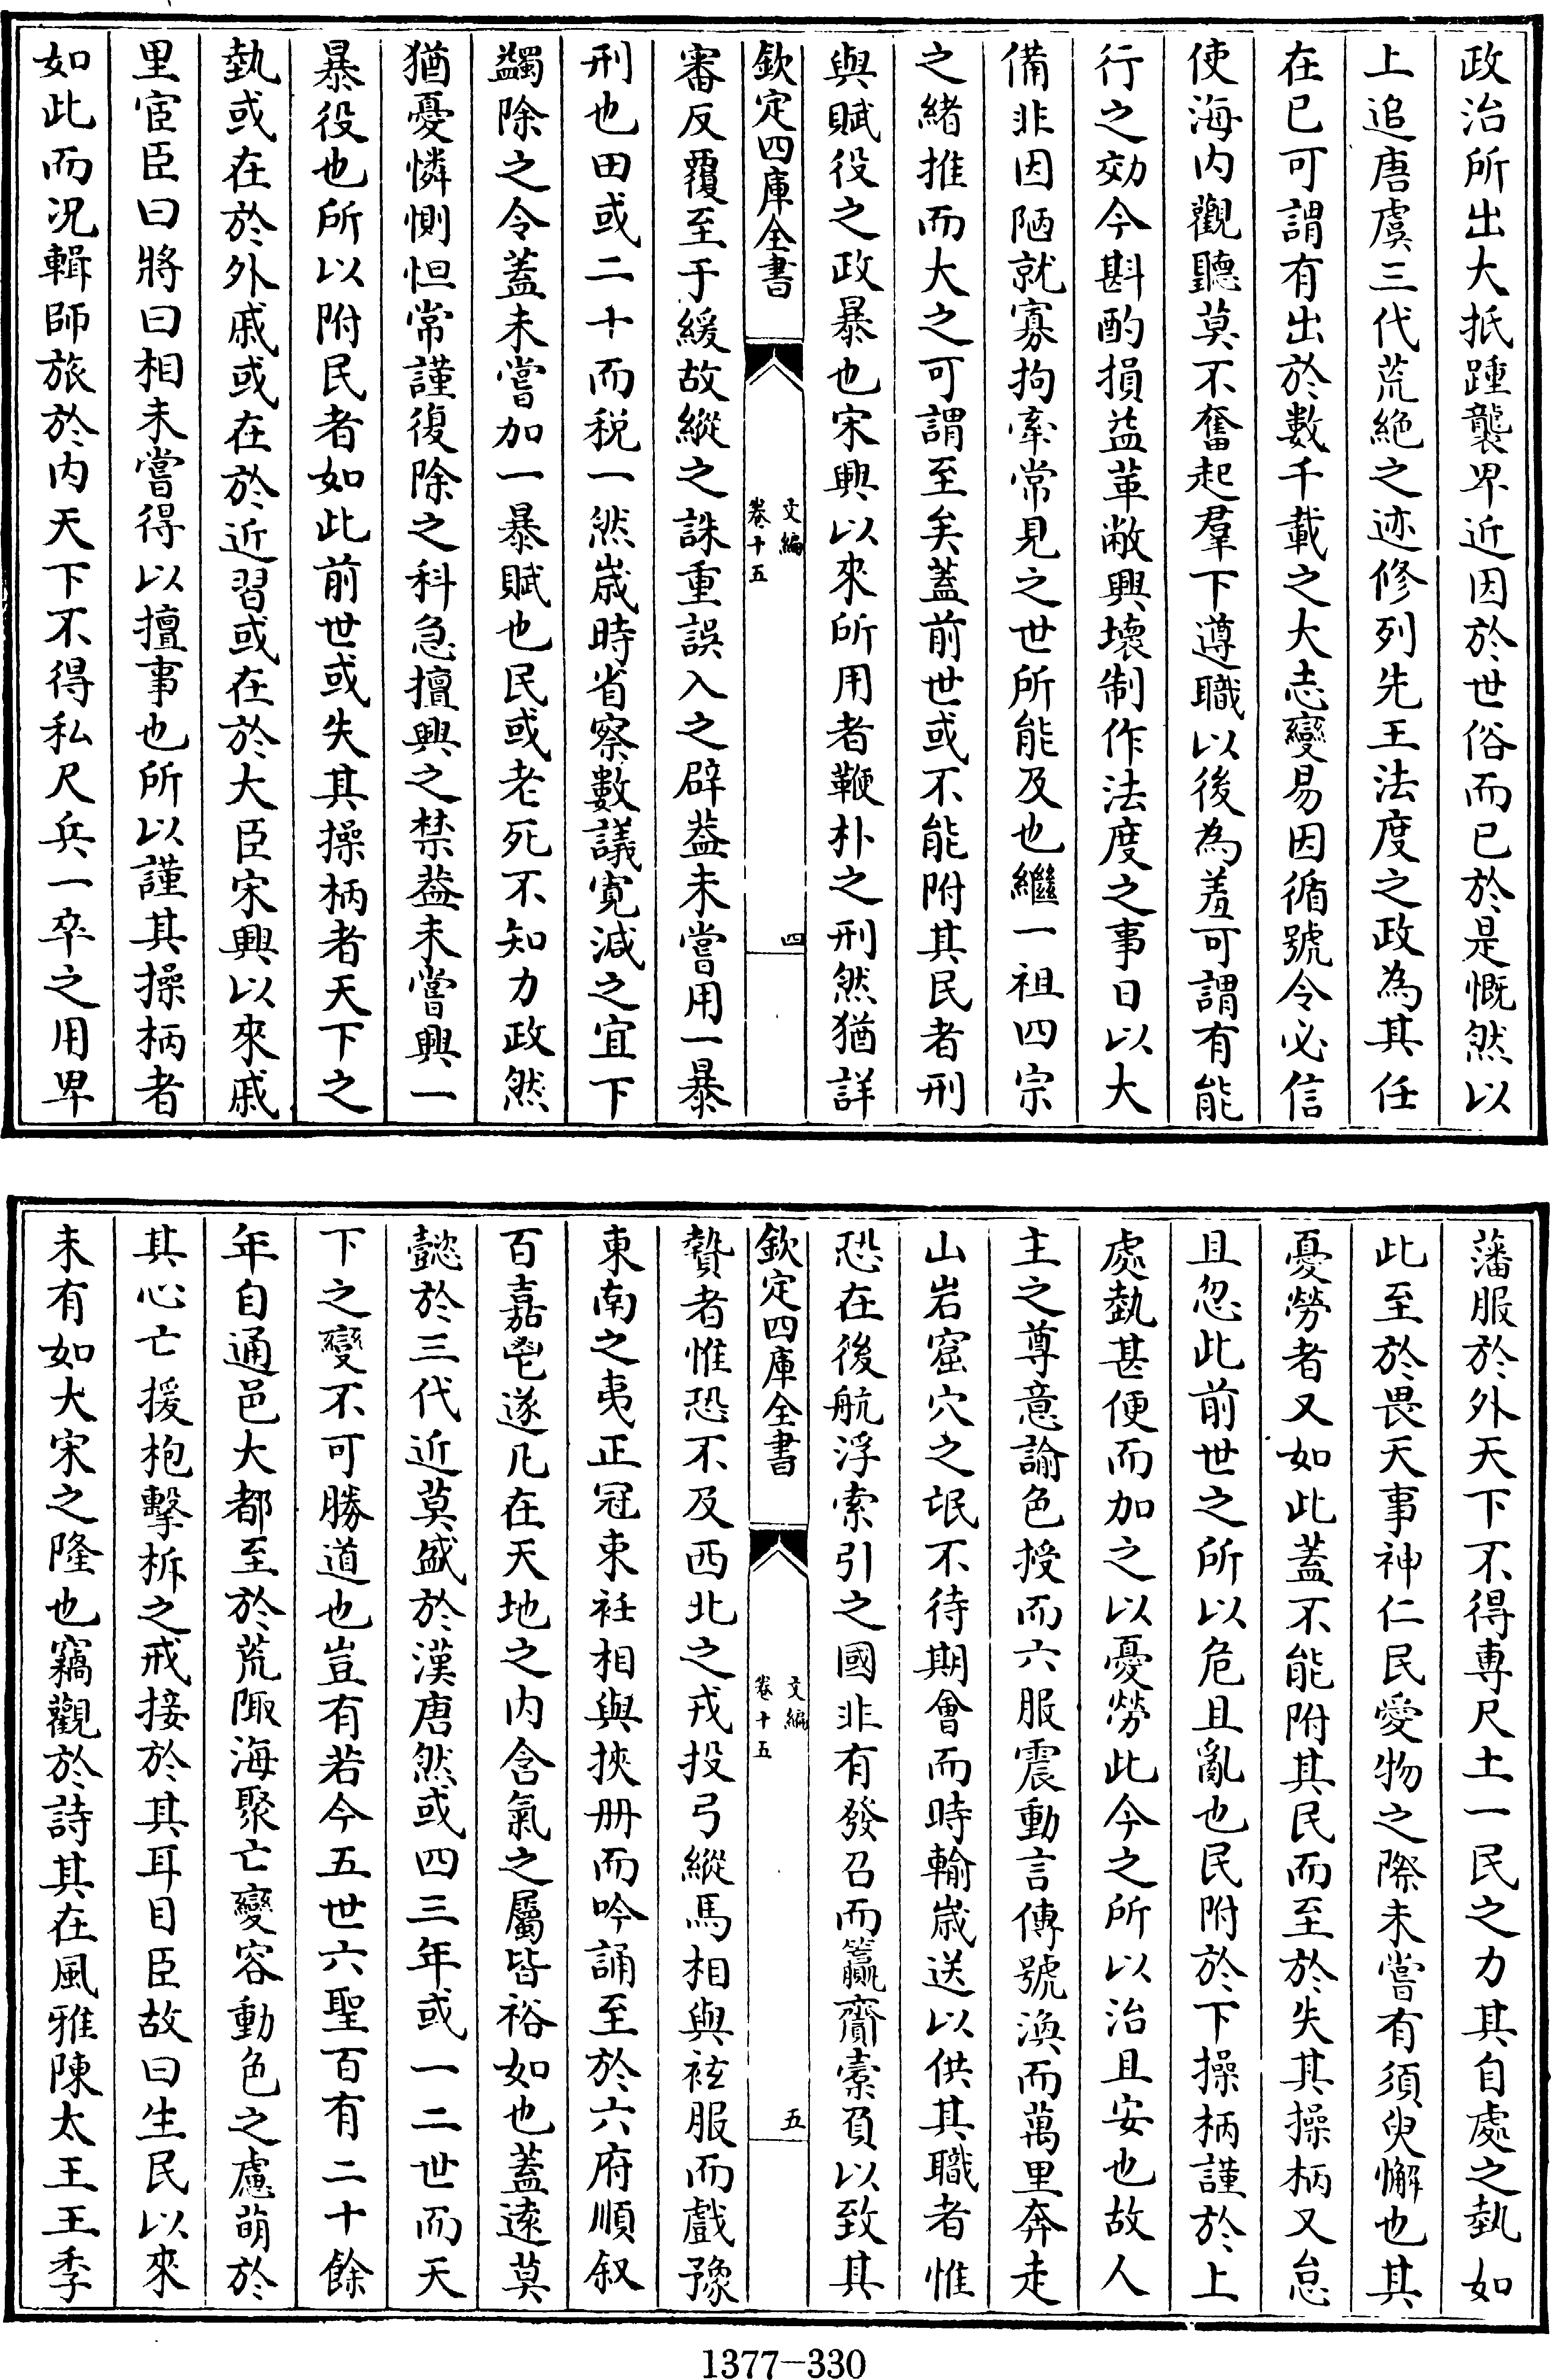 政治所出大抵踵襲卑近因於世俗而已於是慨然以
上追唐虞三代荒絶之迹修列先王法度之政為其任
在已可謂有出於數千載之大志變易因循號令必信
使海内觀聽莫不奮起羣下遵職以後為羞可謂有能
行之効今斟酌損益革敝興壞制作法度之事日以大
備非因陋就寡拘牽常見之世所能及也繼一祖四宗
之緒推而大之可謂至矣蓋前世或不能附其民者刑
與賦役之政暴也宋興以來所用者鞭朴之刑然猶詳
欽定四庫全書
文編
卷十五
四
審反覆至于緩故縱之誅重誤入之辟葢未嘗用一暴
刑也田或二十而税一然嵗時省察數議寛減之宜下
蠲除之令蓋未嘗加一暴賦也民或老死不知力政然
猶憂憐惻怛常謹復除之科急擅興之禁葢未嘗興一
暴役也所以附民者如此前世或失其操柄者天下之
埶或在於外戚或在於近習或在於大臣宋興以來戚
里宦臣曰將曰相未嘗得以擅事也所以謹其操柄者
如此而况輯師旅於内天下不得私尺兵一卒之用卑
藩服於外天下不得專尺土一民之力其自處之埶如
此至於畏天事神仁民愛物之際未嘗有須臾懈也其
憂勞者又如此蓋不能附其民而至於失其操柄又怠
且忽此前世之所以危且亂也民附於下操柄謹於上
處埶甚便而加之以憂勞此今之所以治且安也故人
主之尊意諭色授而六服震動言傳號渙而萬里奔走
山岩窟穴之氓不待期會而時輸嵗送以供其職者惟
恐在後航浮索引之國非有發召而籯齎橐負以致其
欽定四庫全書
文編
卷十五
五
贄者惟恐不及西北之戎投弓縱馬相與袨服而戲豫
東南之夷正冠束衽相與挾册而吟誦至於六府順叙
百嘉鬯遂凡在天地之内含氣之屬皆裕如也蓋逺莫
懿於三代近莫盛於漢唐然或四三年或一二世而天
下之變不可勝道也豈有若今五世六聖百有二十餘
年自通邑大都至於荒陬海聚亡變容動色之慮萌於
其心亡援枹擊柝之戒接於其耳目臣故曰生民以來
未有如大宋之隆也竊觀於詩其在風雅陳太王王季
1377-330